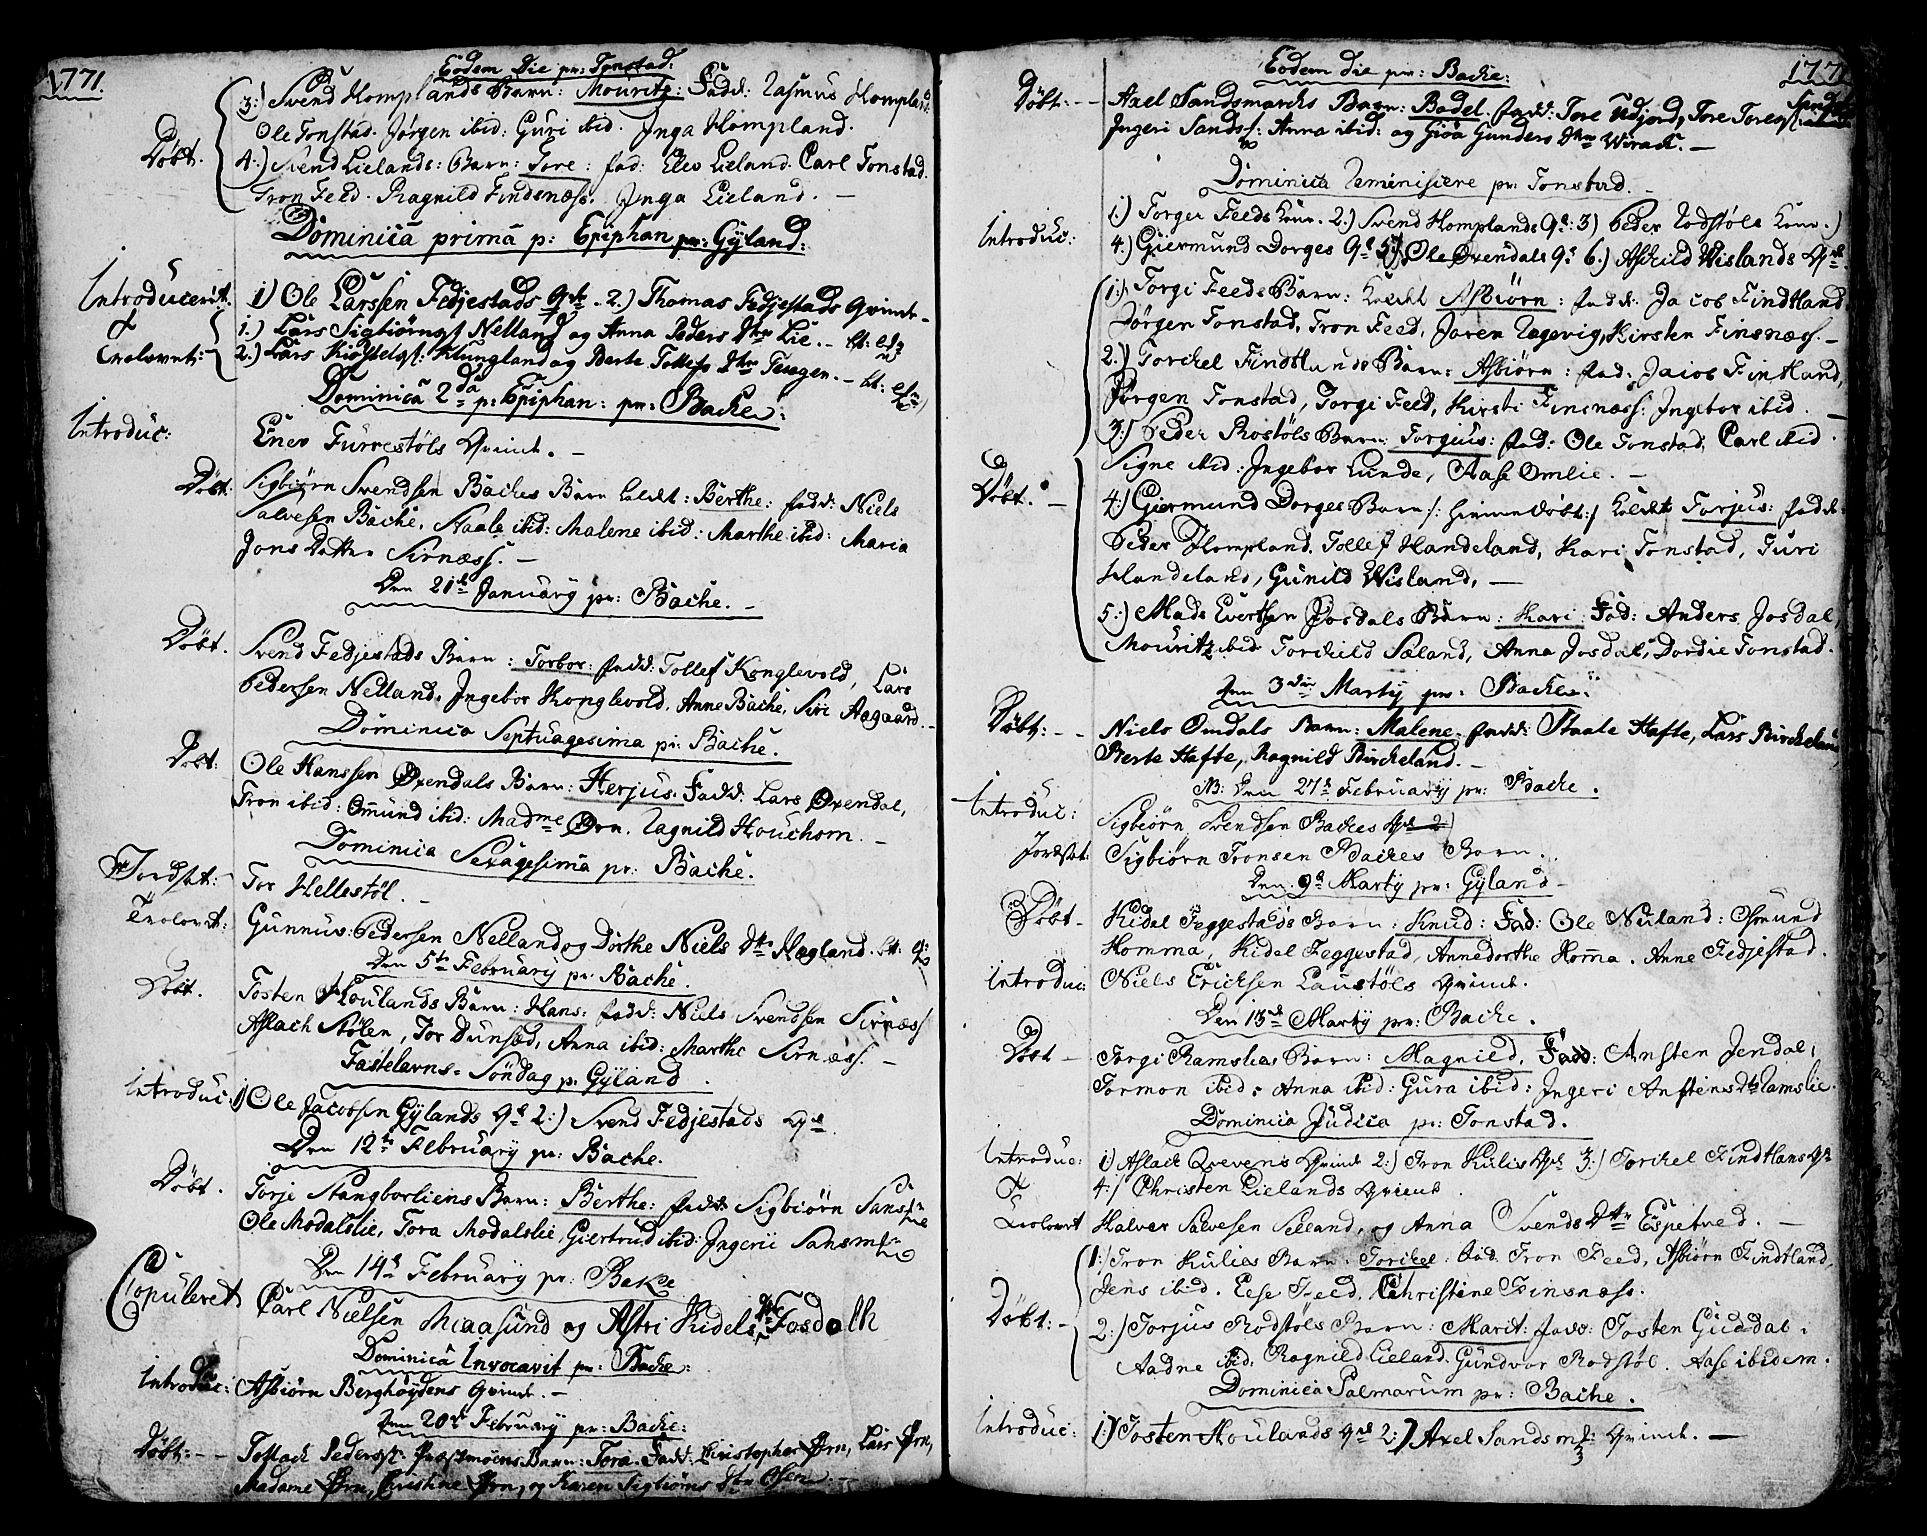 1771.
Eodem Die pr: Tonstad.
3:) Svend Homplands Barn: Mouritz: Fadd: Rasmus Hompland:
Døbt. Ole Tonstad. Jørgen ibid: Guri ibid. Inga Hompland.
4:) Svend Lielands: Barn: Tore: fad: Elev Lieland. Carl Tonstad.
Tron Feed. Ragnild Findsnæss. Inga Lieland. —
Dominica prima p: Epiphan pr: Gyland:
Introducerit: 1) Ole Larssen Fedjestads 2.) Thomas Fedjestads Qvinde
& 1.) Lars Sigbiørns Nelland og Anna Peders Dtr Lie. —
Trolovet: 2.) Lars Klungland og Berte Tollefs Dtr
Dominica 2da p: Epiphan: pr: Backe:
Introduc: Enev Furrestøls Qvinde. —
Døbt: Sigbiørn Svendsen Backes Barn kaldt: Berthe: fadd: Niels
Salvesen Backe, Staale ibid: Malene ibid: Marthe ibid: Maria
Jons Datter Sirnæss. —
Den 21de January pr: Backe. —
Døbt. Svend Fedjestads Barn: Torbor: fadd: Tollef Konglevold, Lars
Pedersen Nelland, Ingebor Konglevold, Anne Backe, Siri Aagaard. —
Dominica Septuagesima pr: Backe.
Døbt: Ole Hanssen Øxendals Barn: Herjus: Fadd: Lars Øxendal,
Tron ibid: Omund ibid: Madme Ørn. Ragnild Houchom. —
Dominica Sexagesima pr: Backe.
Jordsat: Tor Hellestøl. —
Trolovet: Gunnuv Pedersen Nelland og Dorthe Niels Dtr Hægland.
Den 5te February pr: Backe.
Døbt. Tosten Houlands Barn: Hans: fadd: Niels Svendsen Sirnæss
Aslach Stølen, Tor Dunsæd, Anna ibid: Marthe Sirnæss. —
Fastelavns-Søndag p: Gyland.
Introduc: 1) Ole Jacobsen Gylands 2:) Svend Fedjestads
Den 12te February pr: Backe.
Døbt. Torje Stangborliens Barn: Berthe: fadd: Sigbiørn
Ole Modalslie, Tora Modalslie, Giertrud ibid: Ingerii
Den 14de February pr: Bake
Copuleret Carl Nielsen Miaasund og Astri Kidels Dtr Josdalh
Dominica Invocavit pr: Backe:
Introduc: Asbiørn Berghøydens Qvinde. —
Den 20de February pr: Backe:
Døbt: — Tellach Peders: Barn: Tora. Fadd: Christopher Ørn, Lars Ørn,
Madame Ørn, Christine Ørn, og Karen Sigbiørns Dtr Osen. —
1771
Eodem die pr: Backe:
Døbt: — Axel Sandsmarchs Barn: Bodel. fadd: Tore Udjord, Tore Tores:
Ingeri Sands: Anna ibid: og Gioa Gunders Dtr Wirack. —
Dominica Reminiscere pr: Tonstad. —
Introduc: 1.) Torger Feeds 2.) Svend Homplands 3) Peder Rodstøls
4.) Giermund Dorges 5.) Ole Øxendals 6.) Askild Wislands
1.) Torgi Feeds Barn: kaldt Asbiørn: fadd: Jacob Findtland
Jørgen Tonstad, Tron Feed, Joren Regevig, Kirsten Finsnæss. —
2.) Torckel Findtlands Barn: Asbiørn: fad: Jacob Fintland,
Jørgen Tonstad, Torgi Feed, Kirsti Finsnæss: Ingebor ibid. —
3:) Peder Rostøls Barn: Torgius: fad: Ole Tonstad, Carl ibid.
Døbt. — Signe ibid: Ingebor Lunde, Aase Omlie. —
4:) Giermund Dorges Barn /: hiemmedøbt:/ kaldt Torjus: fadd:
Peder Hompland. Tollef Handeland, Kari Tonstad, Turi
Handeland, Gunild Wisland, —
5:) Mads Evertsen Josdals Barn: Kari: Fad: Anders Josdal,
Mouritz ibid Torckild Sæland, Anna Josdal, Dordie Tonstad.
Den 3die Marty pr: Backe:
Døbt: — Niels Omdals Barn: Malene. fadd: Staale Hafte, Lars Birckeland,
Berte Hafte, Ragnild Birckeland. —
NB: Den 27de February pr: Backe.
Introduc: Sigbiørn Svendsen Backes
Jordsat: Sigbiørn Tronsen Backes Barn.
Den 9de Marty pr: Gyland —
Døbt — Kidel Feggestads Barn: Knud: Fad: Ole Nuland: Osmund
Homma, Kidel Feggestad, Annedorthe Homma. Anne Fedjestad.
Introduc: Niels Ericksen Laustøls Qvinde.
Den 13de Marty pr: Backe.
Døbt — Torgi Ramslias Barn: Magnild. Fadd: Ansten Jendal,
Tormon ibid: Anna ibid: Gura ibid: Ingeri Anstens Dtr Ramslie.
Dominica Judica pr: Tonstad.
Introduc: 1.) Aslack Qvevens Qvinde 2:) Tron Kulis 3:) Torckel Findtlans
& 4:/ Christen Lielands Qvinde.
Trolovet Halvor Salvesen Seland, og Anna Svends Dtr Espetved. —
1:/ Tron Kulias Barn: Torckel: fad. Tron Feed, Asbiørn Findtland,
Jens ibid. Eese Feed, Christine Finsnæss.
Døbt: — 2:) Torjus Rodstøls Barn: Marit: fadd: Tosten Guddal.
Aadne ibid, Ragnild Lieland. Gundvor Rodstøl. Aase ibidem.
Dominica Palmarum pr: Backe.
Introduc: 1:) Tosten Houlands 2:) Axel Sandsm: Qvinde. —